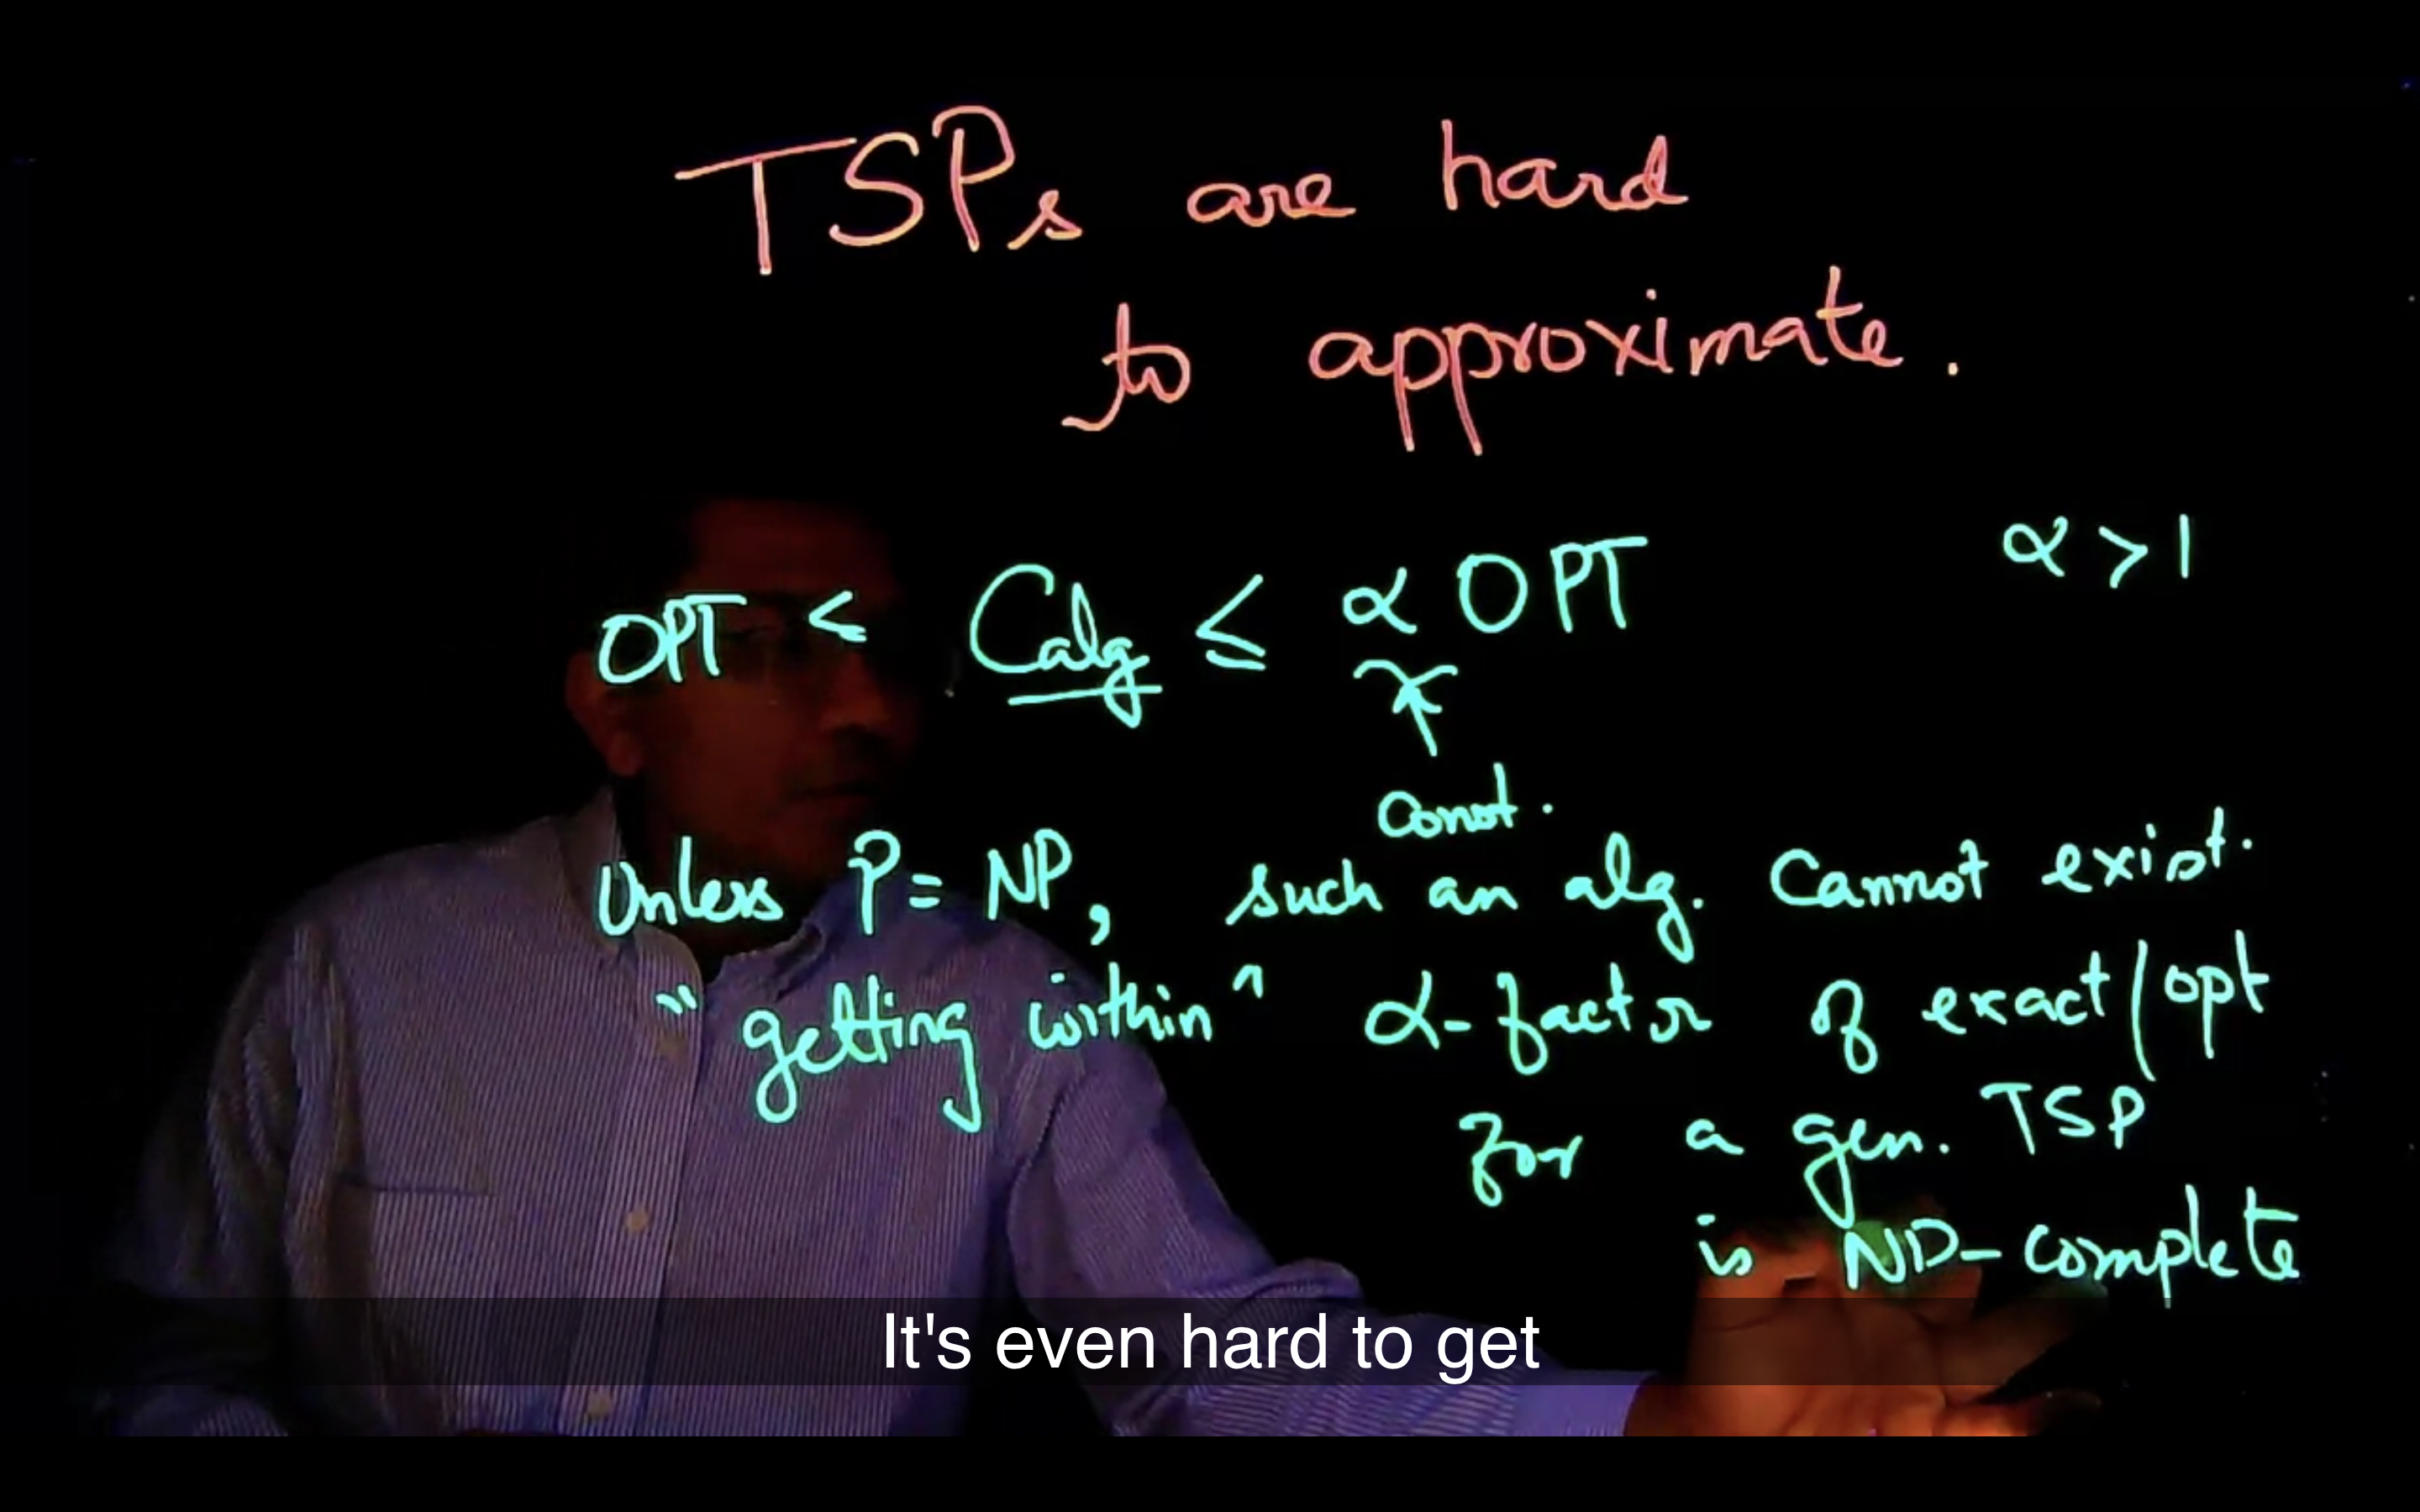 TSPs are hard
to approximate.
α > 1
OPT ≤ Calg ≤ α OPT
Const.
Unless P = NP, such an alg. Cannot exist.
"getting within" α-factor of exact/opt
for a gen. TSP
is NP-complete
It's even hard to get